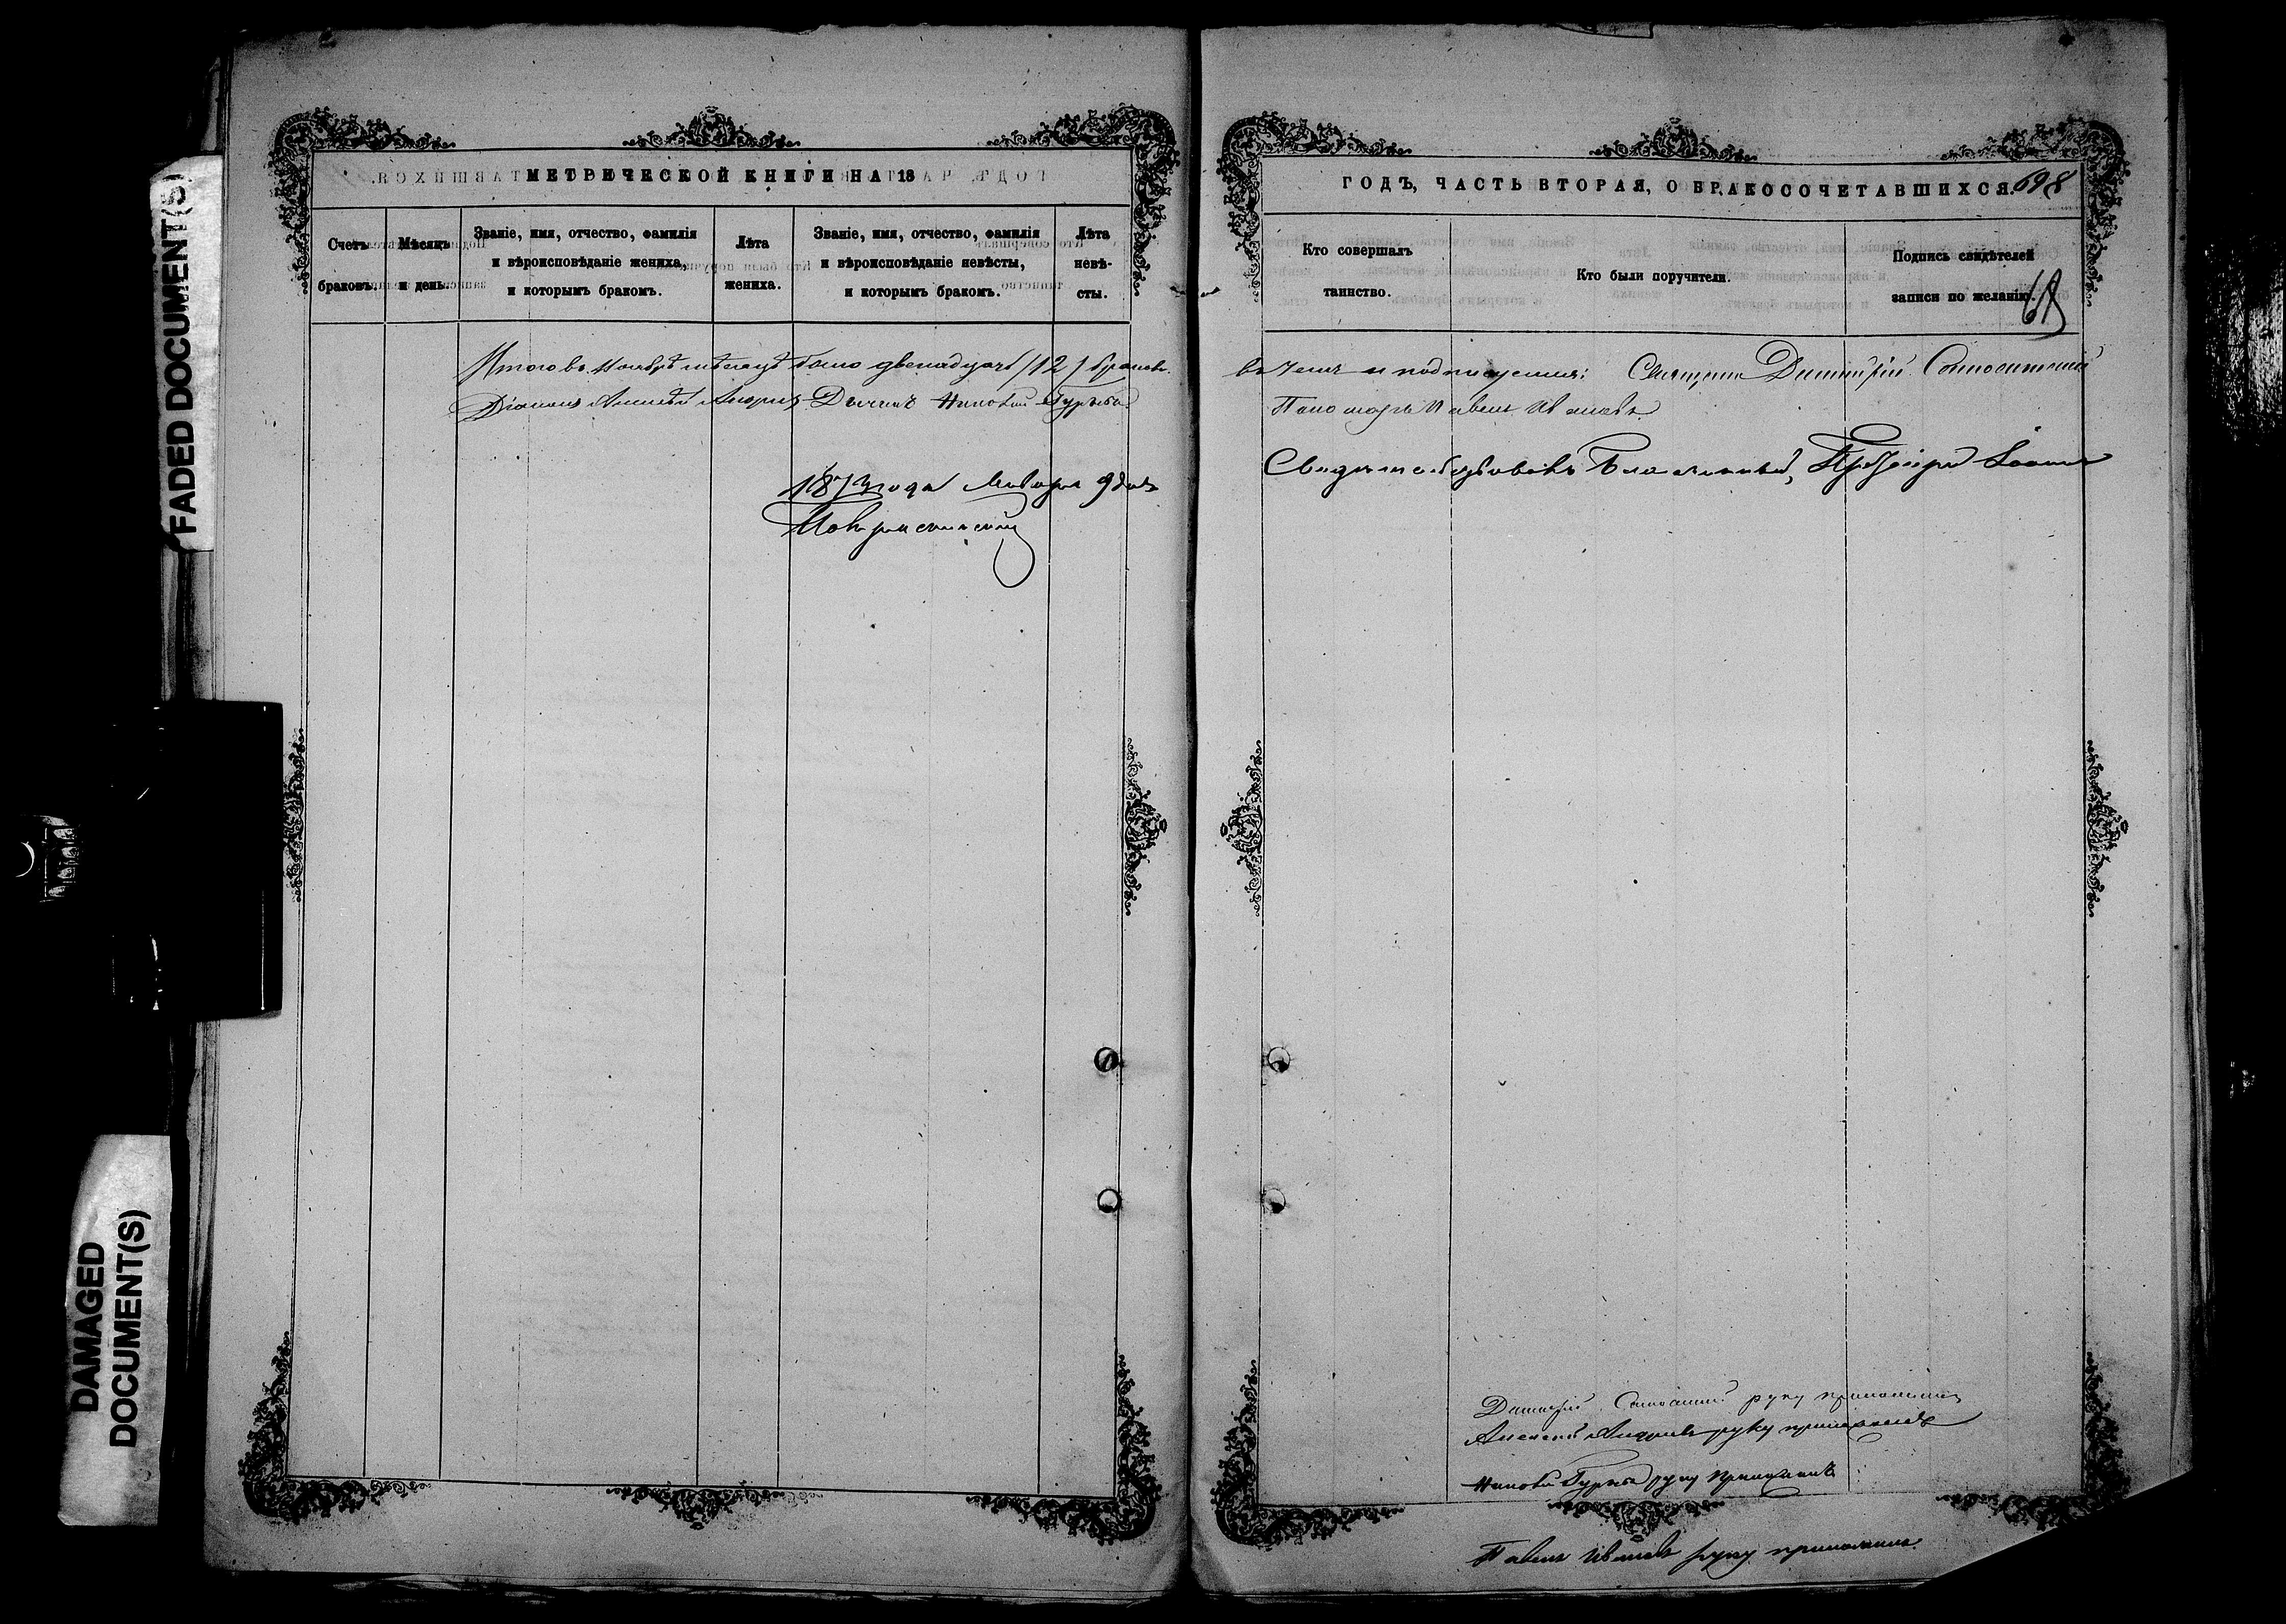 FADED DOCUMENT(S)
DAMAGED
DOCUMENT(S)
МЕТРИЧЕСКОЙ КНИГИ НА 18
Счетъ
браковъ.
Мѣсяцъ
и день.
Званіе, имя, отчество, фамилія
и вѣроисповѣданіе жениха,
и которымъ бракомъ.
Лѣта
жениха.
Званіе, имя, отчество, фамилія
и вѣроисповѣданіе невѣсты,
и которымъ бракомъ.
Лѣта
невѣ-
сты.
Итого въ Ноябрѣ мѣсяцѣ было двенадцать (12) браковъ.
Діаконъ Алексѣй Андреевъ Дьячекъ Гурьевъ
1873 года Января 9 дня
ГОДЪ, ЧАСТЬ ВТОРАЯ, О БРАКОСОЧЕТАВШИХСЯ.
698
68
Кто совершалъ
таинство.
Кто были поручители.
Подпись свидѣтелей
записи по желанію.
въ чемъ и подписуемся: Священникъ Димитрій
Пономарь Павелъ Ивановъ
Свидѣтельствовалъ Благочинный, Іоаннъ
Димитрій руку приложилъ
Алексѣй Андреевъ руку приложилъ
Гурьевъ руку приложилъ
Павелъ Ивановъ руку приложилъ